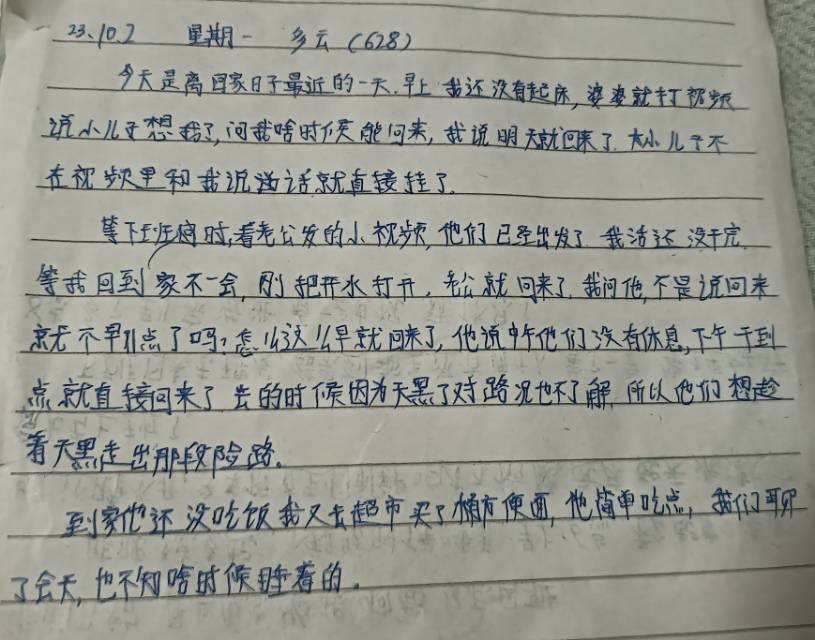 23.10.2 星期一 多云（628）
今天是离回家日子最近的一天.早上我还没有起床,婆婆就打视频
说小儿子想我了,问我啥时候能回来,我说明天就回来了.小儿子不
在视频里和我说话就直接挂了.
等下班时,看老公发的小视频,他们已经出发了.我活还没干完.
等我回到家不一会,刚把开水打开,老公就回来了.我问他,不是说回来
就不早了吗?怎么这么早就回来了,他说中午他们没有休息,下午干到
点就直接回来了.去的时候因为天黑了对路况也不了解,所以他们想趁
着天黑走出那段险路.
到家他还没吃饭,我又去超市买了桶方便面,他简单吃点,我们聊
了会天,也不知啥时候睡着的.